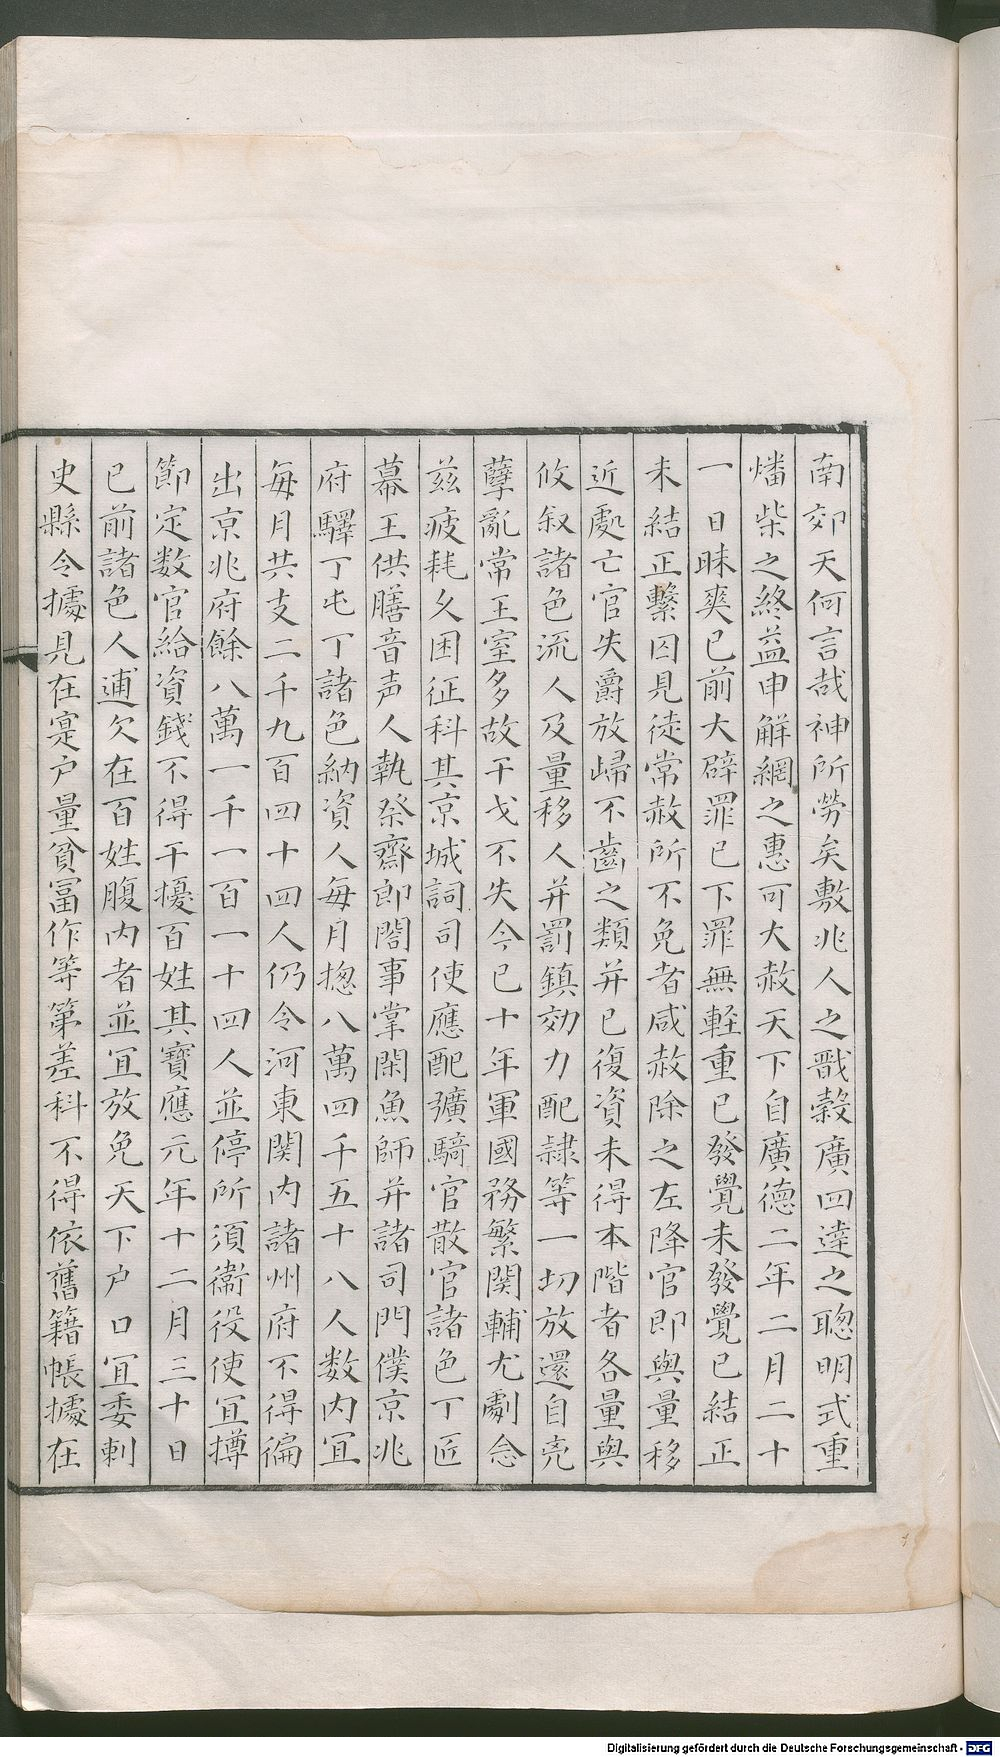 南郊天何言哉神所勞矣敷兆人之戩穀廣四達之聰明式重
燔柴之終益申解網之惠可大赦天下自廣德二年二月二十
一日昧爽已前大辟罪已下罪無輕重已發覺未發覺已結正
未結正繫囚見徒常赦所不免者咸赦除之左降官即與量移
近處亡官失爵放歸不齒之類并已復資未得本階者各量與
收叙諸色流人及量移人并罰鎮効力配隸等一切放還自亮
孽亂常王室多故干戈不失今已十年軍國務繁関輔尤劇念
茲疲耗久困征科其京城詞司使應配彍騎官散官諸色丁匠
幕王供膳音声人執祭齋郎閤事掌閑魚師并諸司門僕京兆
府驛丁屯丁諸色納資人每月揔八萬四千五十八人数内宜
每月共支二千九百四十四人仍令河東関内諸州府不得徧
出京兆府餘八萬一千一百一十四人並停所須衞役使宜撙
節定数官給資錢不得干擾百姓其寶應元年十二月三十日
已前諸色人逋欠在百姓腹内者並宜放免天下户口宜委刺
史縣令據見在寔户量貧冨作等第差科不得依舊籍帳據在
Digitalisierung gefördert durch die Deutsche Forschungsgemeinschaft - DFG